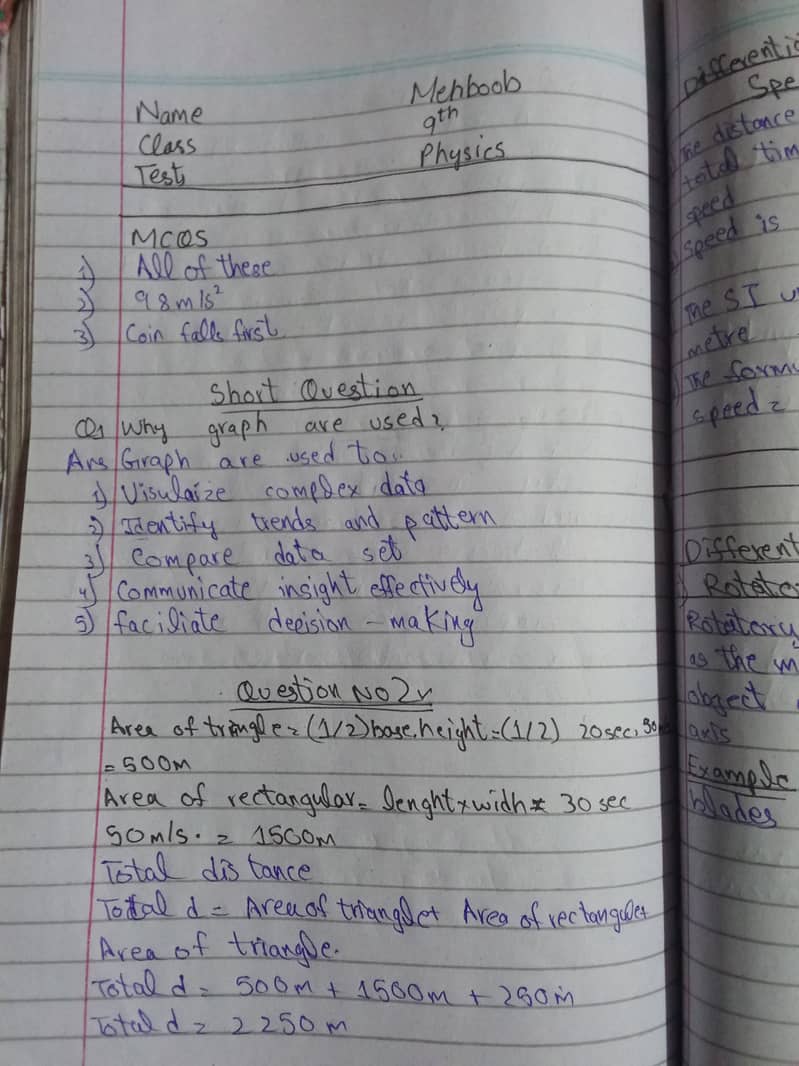 Name Mehboob
Class 9th
Test Physics
MCQS
1) All of these
2) 98 m/s²
3) Coin falls first
Short Question
Q1 Why graph are used?
Ans Graph are used to..
1) Visulaize complex data
2) Identify trends and pattern
3) Compare data set
4) Communicate insight effectively
5) faciliate decision - making
Question No 2
Area of triangle = (1/2) base. height = (1/2) 20sec, 50m
= 500m
Area of rectangular = lenght x widh = 30 sec
50m/s. = 1500m
Total distance
Total d = Area of triangle + Area of rectangular +
Area of triangle.
Total d = 500m + 1500m + 250m
Total d = 2250m
Differentia
Spe
The distance
total tim
speed
speed is
The SI u
metre
The formu
speed =
Different
Rotato
Rotatory
as the m
object
axis
Example
blades